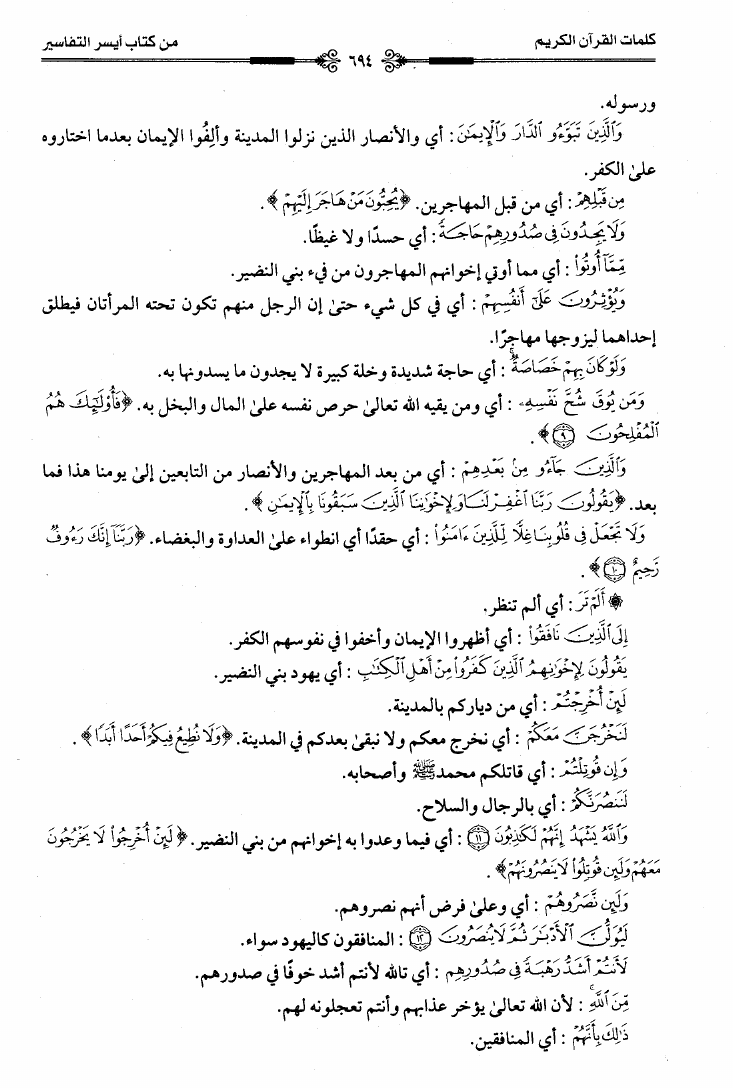 كلمات القرآن الكريم
من كتاب أيسر التفاسير
٦٩٤
ورسوله.
وَٱلَّذِينَ تَبَوَّءُو ٱلدَّارَ وَٱلْإِيمَٰنَ : أي والأنصار الذين نزلوا المدينة وألِفُوا الإيمان بعدما اختاروه
علىٰ الكفر.
مِن قَبْلِهِمْ : أي من قبل المهاجرين. ﴿يُحِبُّونَ مَنْ هَاجَرَ إِلَيْهِمْ﴾ .
وَلَا يَجِدُونَ فِى صُدُورِهِمْ حَاجَةً : أي حسدًا ولا غيظًا.
مِّمَّآ أُوتُوا۟ : أي مما أوتي إخوانهم المهاجرون من فيء بني النضير.
وَيُؤْثِرُونَ عَلَىٰٓ أَنفُسِهِمْ : أي في كل شيء حتىٰ إن الرجل منهم تكون تحته المرأتان فيطلق
إحداهما ليزوجها مهاجرًا.
وَلَوْ كَانَ بِهِمْ خَصَاصَةٌ ۚ : أي حاجة شديدة وخلة كبيرة لا يجدون ما يسدونها به.
وَمَن يُوقَ شُحَّ نَفْسِهِۦ : أي ومن يقيه الله تعالىٰ حرص نفسه علىٰ المال والبخل به. ﴿فَأُو۟لَٰٓئِكَ هُمُ
ٱلْمُفْلِحُونَ ٩﴾ .
وَٱلَّذِينَ جَآءُو مِنۢ بَعْدِهِمْ : أي من بعد المهاجرين والأنصار من التابعين إلىٰ يومنا هذا فما
بعد. ﴿يَقُولُونَ رَبَّنَا ٱغْفِرْ لَنَا وَلِإِخْوَٰنِنَا ٱلَّذِينَ سَبَقُونَا بِٱلْإِيمَٰنِ﴾ .
وَلَا تَجْعَلْ فِى قُلُوبِنَا غِلًّا لِّلَّذِينَ ءَامَنُوا۟ : أي حقدًا أي انطواء علىٰ العداوة والبغضاء. ﴿رَبَّنَآ إِنَّكَ رَءُوفٌ
رَّحِيمٌ ١٠﴾ .
۞ أَلَمْ تَرَ : أي ألم تنظر.
إِلَى ٱلَّذِينَ نَافَقُوا۟ : أي أظهروا الإيمان وأخفوا في نفوسهم الكفر.
يَقُولُونَ لِإِخْوَٰنِهِمُ ٱلَّذِينَ كَفَرُوا۟ مِنْ أَهْلِ ٱلْكِتَٰبِ : أي يهود بني النضير.
لَئِنْ أُخْرِجْتُمْ : أي من دياركم بالمدينة.
لَنَخْرُجَنَّ مَعَكُمْ : أي نخرج معكم ولا نبقىٰ بعدكم في المدينة. ﴿وَلَا نُطِيعُ فِيكُمْ أَحَدًا أَبَدًا﴾ .
وَإِن قُوتِلْتُمْ : أي قاتلكم محمد ﷺ وأصحابه.
لَنَنصُرَنَّكُمْ : أي بالرجال والسلاح.
وَٱللَّهُ يَشْهَدُ إِنَّهُمْ لَكَٰذِبُونَ ١١ : أي فيما وعدوا به إخوانهم من بني النضير. ﴿لَئِنْ أُخْرِجُوا۟ لَا يَخْرُجُونَ
مَعَهُمْ وَلَئِن قُوتِلُوا۟ لَا يَنصُرُونَهُمْ﴾ .
وَلَئِن نَّصَرُوهُمْ : أي وعلىٰ فرض أنهم نصروهم.
لَيُوَلُّنَّ ٱلْأَدْبَٰرَ ثُمَّ لَا يُنصَرُونَ ١٢ : المنافقون كاليهود سواء.
لَأَنتُمْ أَشَدُّ رَهْبَةً فِى صُدُورِهِم : أي تالله لأنتم أشد خوفًا في صدورهم.
مِّنَ ٱللَّهِ ۚ : لأن الله تعالىٰ يؤخر عذابهم وأنتم تعجلونه لهم.
ذَٰلِكَ بِأَنَّهُمْ : أي المنافقين.